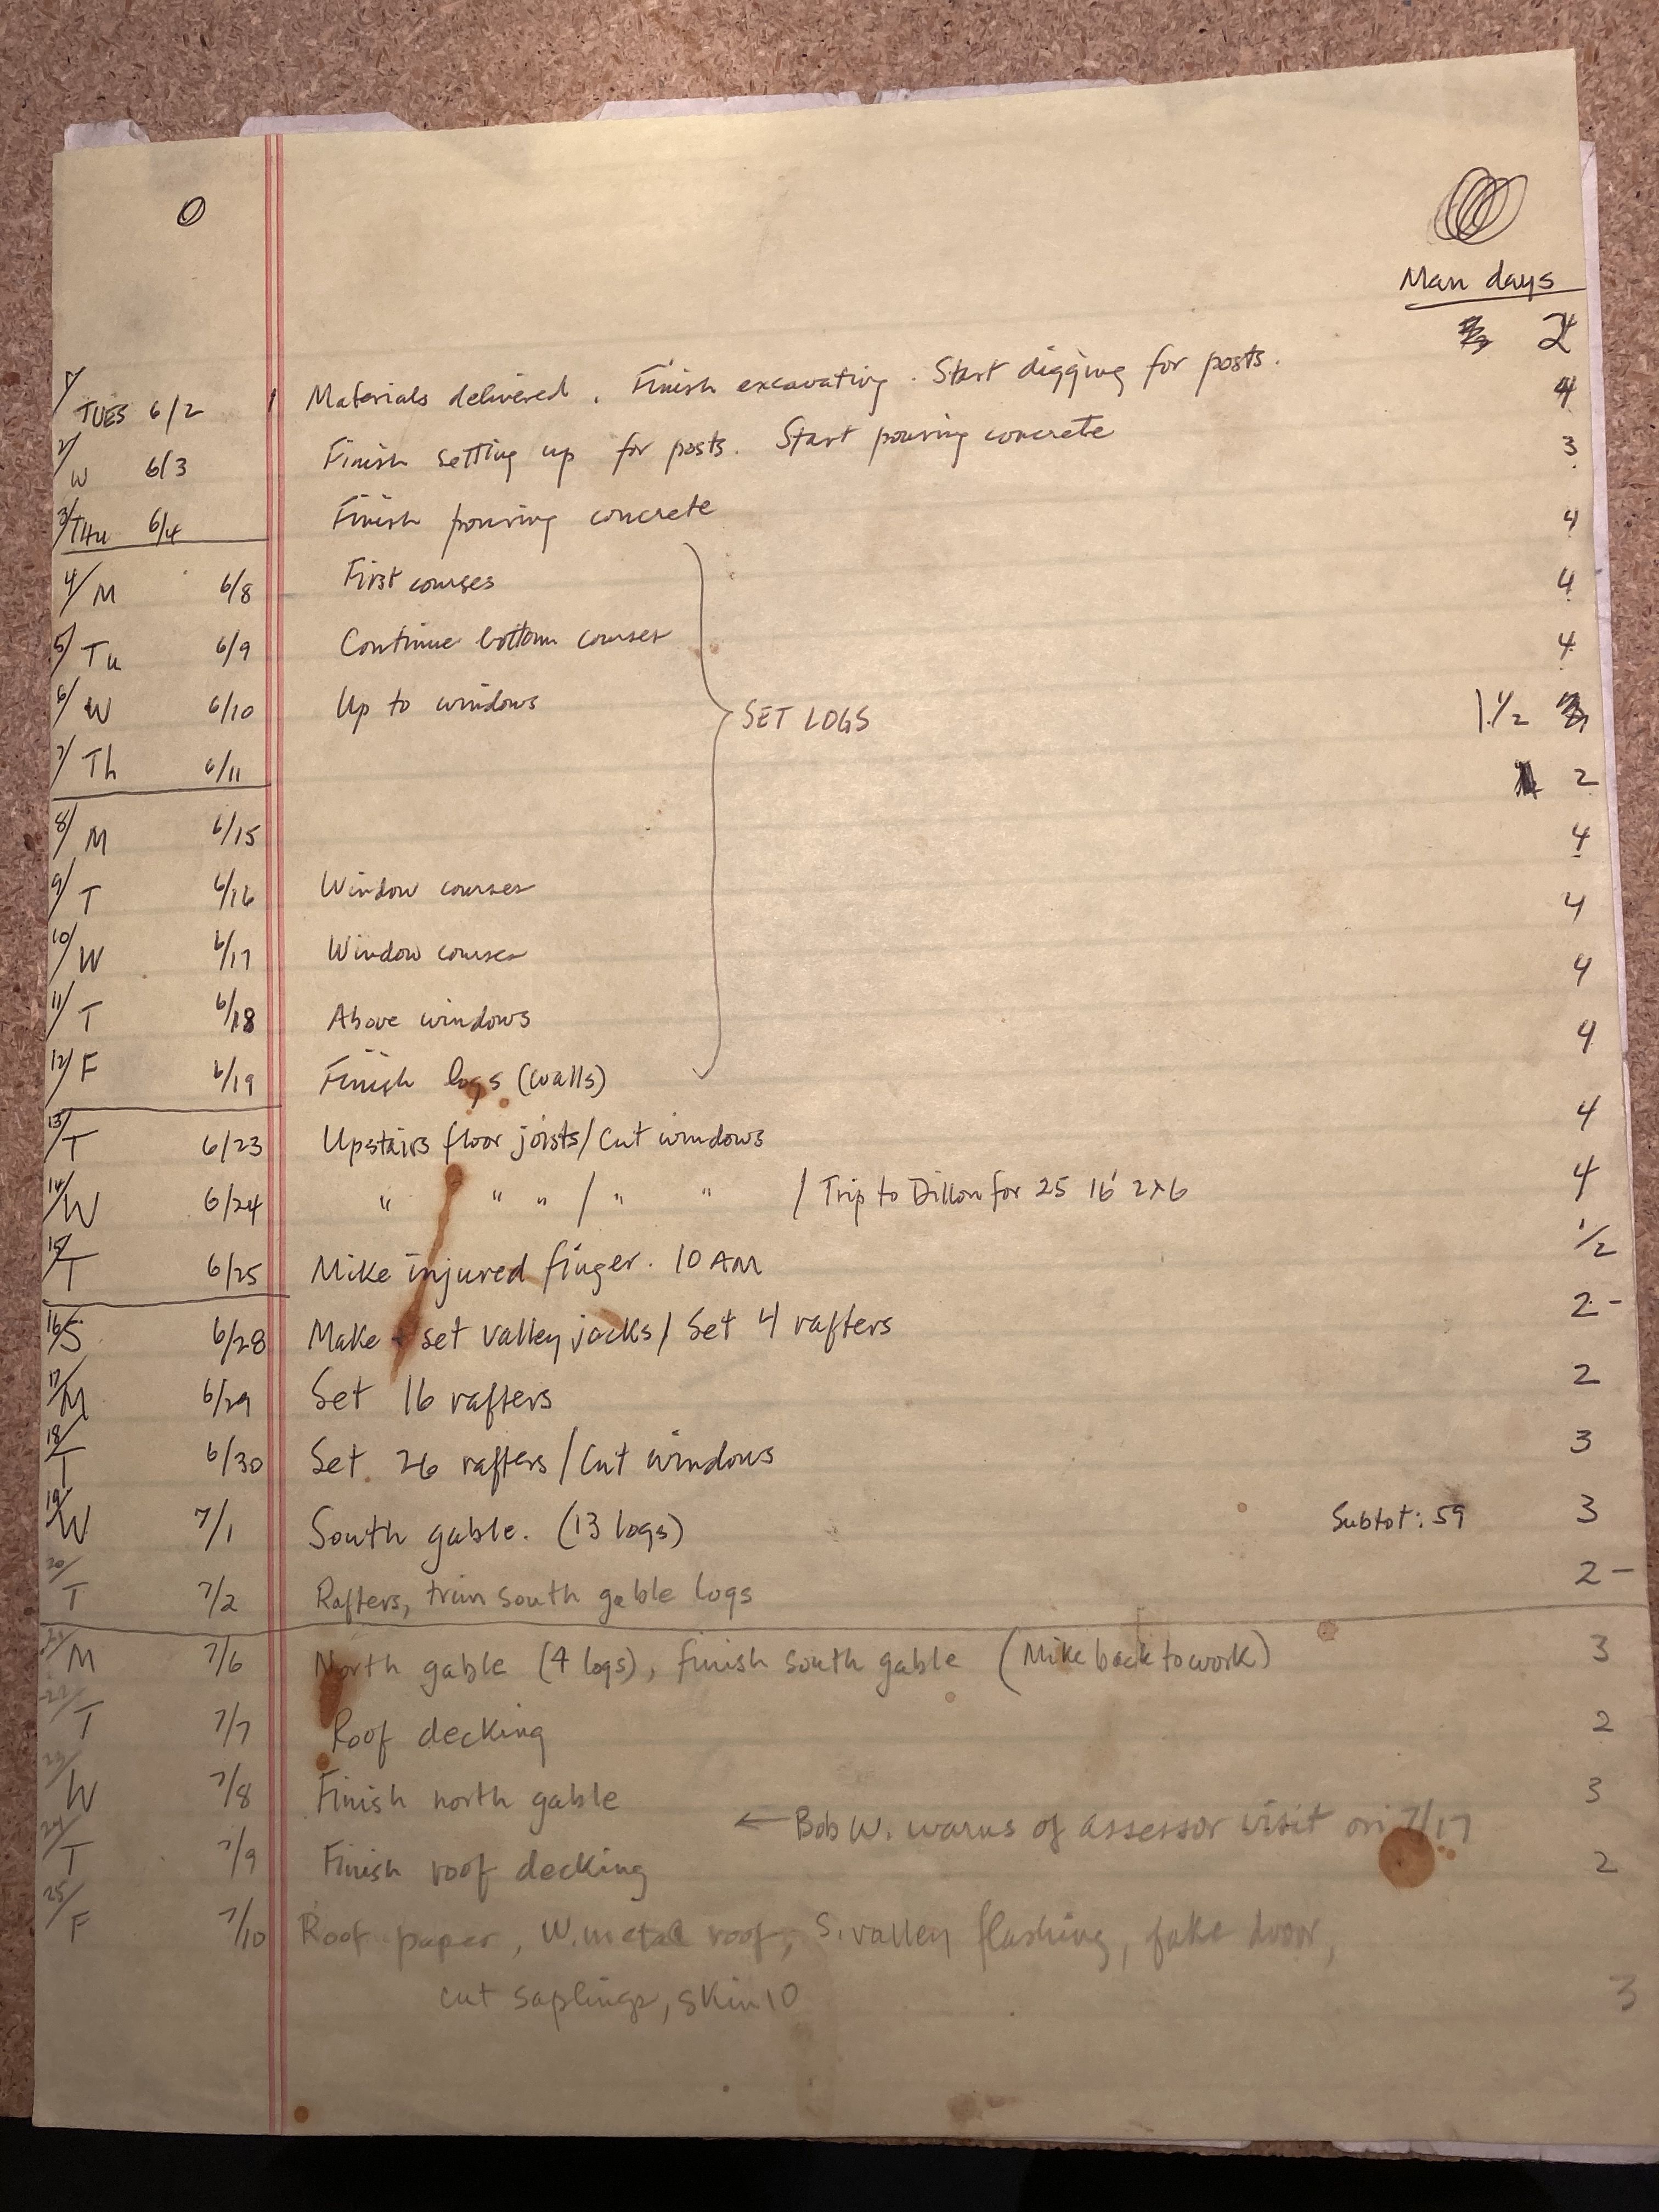 Man days
2
1/ TUES 6/2 Materials delivered. Finish excavating. Start digging for posts. 4
2/ W 6/3 Finish setting up for posts. Start pouring concrete 3
3/ THu 6/4 Finish pouring concrete 4
4/ M 6/8 First courses 4
5/ Tu 6/9 Continue bottom courses 4
6/ W 6/10 Up to windows SET LOGS 1 1/2
7/ Th 6/11 2
8/ M 6/15 4
9/ T 6/16 Window courses 4
10/ W 6/17 Window courses 4
11/ T 6/18 Above windows 4
12/ F 6/19 Finish logs (walls)
13/ T 6/23 Upstairs floor joists/Cut windows 4
14/ W 6/24 " " " / " " / Trip to Dillon for 25 16' 2x6 4
15/ T 6/25 Mike injured finger. 10 AM 1/2
16/ S 6/28 Make & set valley jacks/ Set 4 rafters 2-
17/ M 6/29 Set 16 rafters 2
18/ T 6/30 Set 26 rafters /Cut windows 3
19/ W 7/1 South gable. (13 logs) Subtot: 59 3
20/ T 7/2 Rafters, trim south gable logs 2-
21/ M 7/6 North gable (4 logs), finish south gable (Mike back to work) 3
22/ T 7/7 Roof decking 2
23/ W 7/8 Finish north gable 3
← Bob W. warns of assessor visit on 7/17
24/ T 7/9 Finish roof decking 2
25/ F 7/10 Roof paper, W. metal roof, S. valley flashing, fake door,
cut saplings, skin 10 3